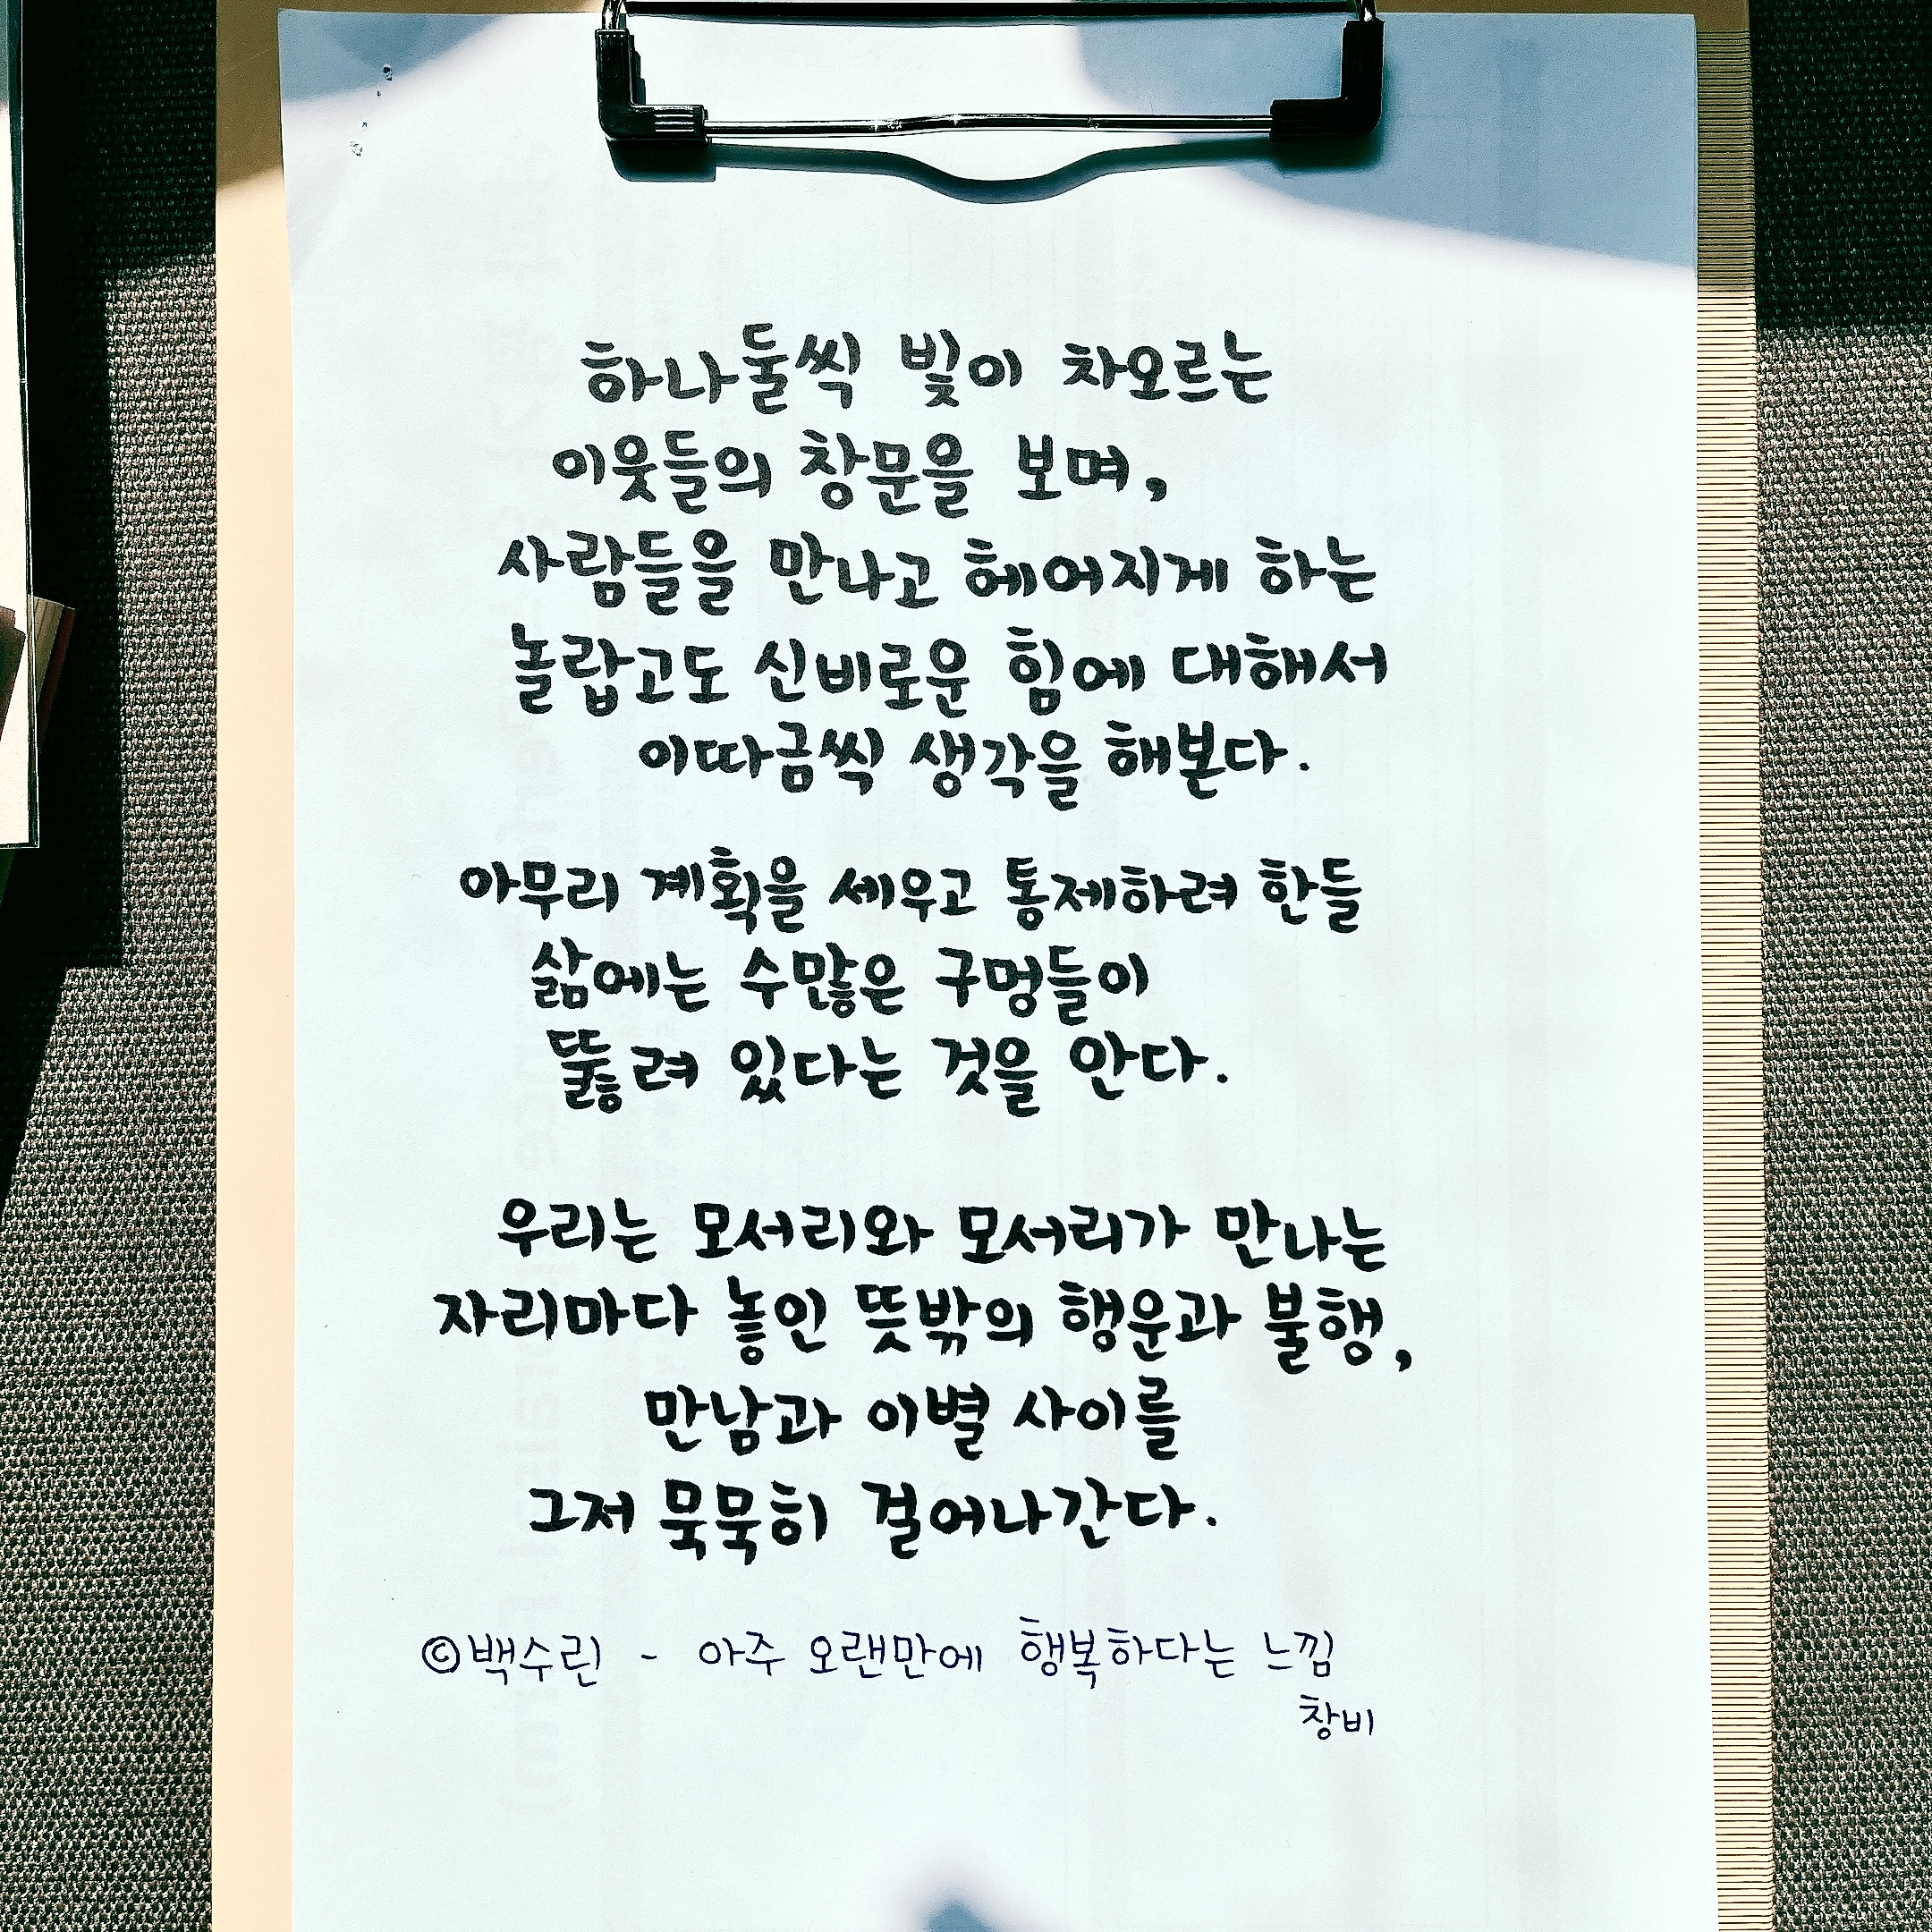 하나둘씩 빛이 차오르는
이웃들의 창문을 보며,
사람들을 만나고 헤어지게 하는
놀랍고도 신비로운 힘에 대해서
이따금씩 생각을 해본다.
아무리 계획을 세우고 통제하려 한들
삶에는 수많은 구멍들이
뚫려 있다는 것을 안다.
우리는 모서리와 모서리가 만나는
자리마다 놓인 뜻밖의 행운과 불행,
만남과 이별 사이를
그저 묵묵히 걸어나간다.
©백수린 - 아주 오랜만에 행복하다는 느낌
창비